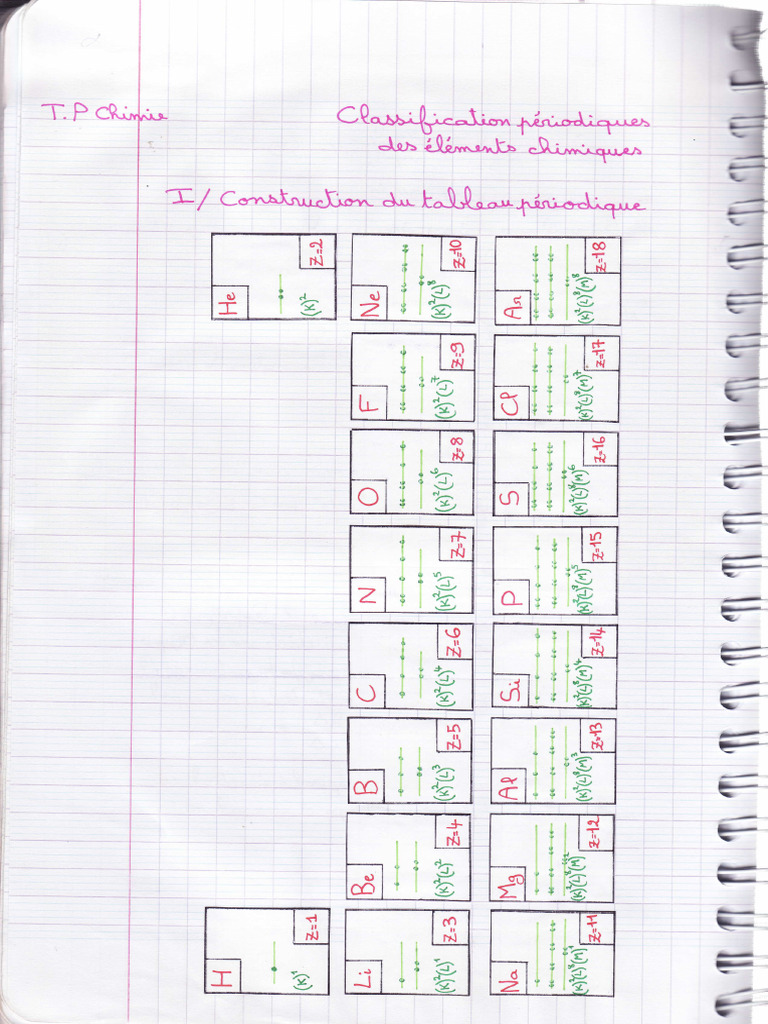 T.P Chimie
Classification périodiques
des éléments chimiques
I/ Construction du tableau périodique
H
Z=1
(K)¹
He
Z=2
(K)²
Li
Z=3
(K)²(L)¹
Be
Z=4
(K)²(L)²
B
Z=5
(K)²(L)³
C
Z=6
(K)²(L)⁴
N
Z=7
(K)²(L)⁵
O
Z=8
(K)²(L)⁶
F
Z=9
(K)²(L)⁷
Ne
Z=10
(K)²(L)⁸
Na
Z=11
(K)²(L)⁸(M)¹
Mg
Z=12
(K)²(L)⁸(M)²
Al
Z=13
(K)²(L)⁸(M)³
Si
Z=14
(K)²(L)⁸(M)⁴
P
Z=15
(K)²(L)⁸(M)⁵
S
Z=16
(K)²(L)⁸(M)⁶
Cl
Z=17
(K)²(L)⁸(M)⁷
Ar
Z=18
(K)²(L)⁸(M)⁸